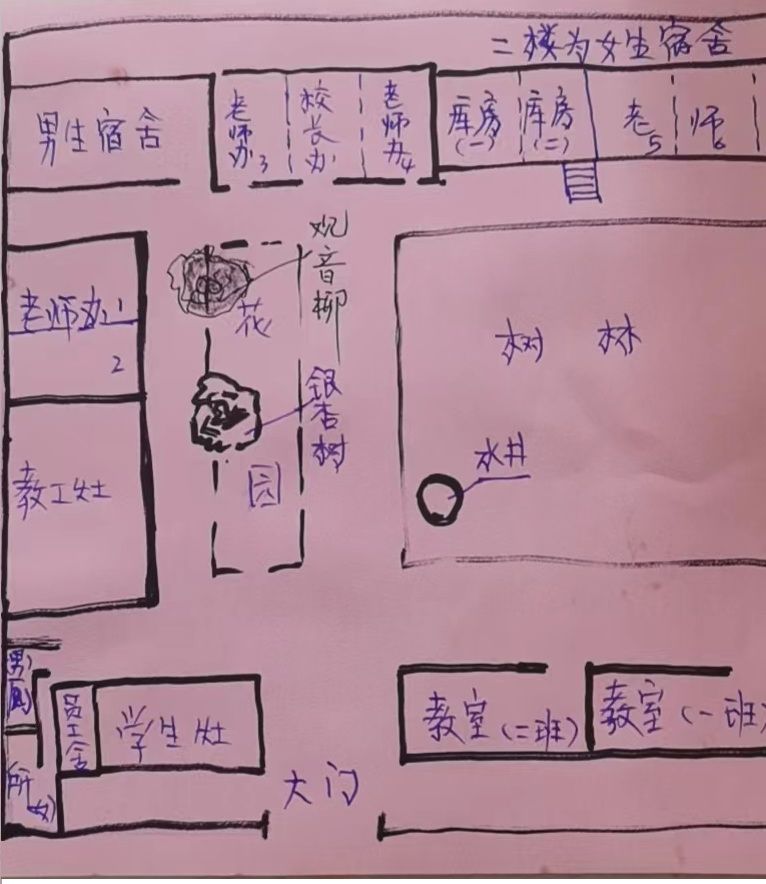 二楼为女生宿舍
男生宿舍
老师办3
校长办
老师办4
库房(一)
库房(二)
老5
师6
观音柳
花
园
银杏树
老师办1
2
教工灶
树林
水井
男厕
所(女)
员工舍
学生灶
大门
教室(二班)
教室(一班)